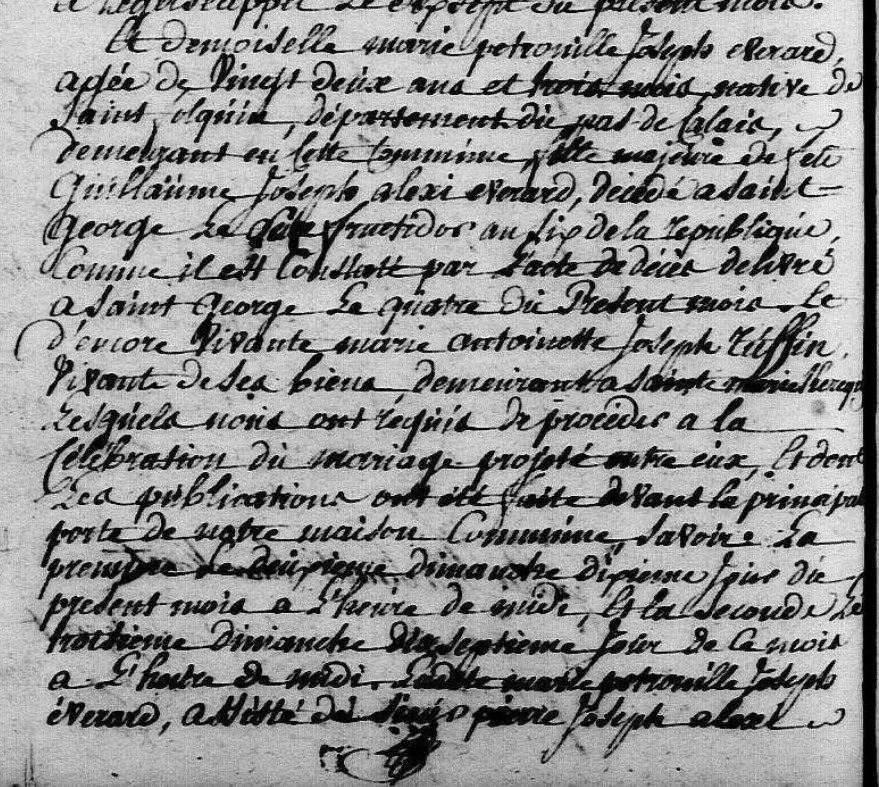 du présent mois.
Et demoiselle marie petronille Joseph everard,
agée de Vingt deux ans et trois mois, native de
Saint folquin, département du pas de Calais,
demeurant en Cette Commune, fille majeure de feu
Guillaume Joseph alexi everard, décédé a Saint
George Le fructidor an six de la république,
Comme il est Constaté par L'acte de décès délivré
a Saint George Le quatre du Présent mois. Et
d'encore Vivante marie antoinette Joseph Ruffin,
Vivante de Ses biens, demeurant a Sainte marie Kerque
Lesquels nous ont requis de procéder a la
Célébration du mariage projeté entre eux, Et dont
Les publications ont été faite devant la principale
porte de notre maison Commune, Savoire La
premiere Le deuxieme dimanche dixieme Jour du
présent mois a L'heure de midi, Et la Seconde Le
troisieme dimanche dix septieme Jour de Ce mois
a L'heure de midi. Ladite marie petronille Joseph
éverard, assisté de pierre Joseph alexi